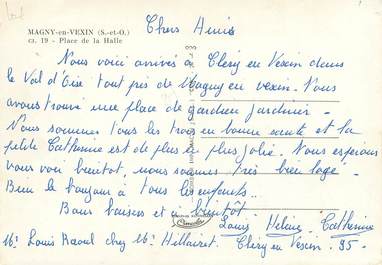 MAGNY-en-VEXIN (S.-et-O.)
ca. 19 - Place de la Halle
Chers Amis
Nous voici arrivés à Clery en Vexin dans
le Val d'Oise tout près de Magny en vexin. Nous
avons trouvé une place de gardien Jardinier.
Nous sommes tous les trois en bonne santé et la
petite Catherine est de plus en plus jolie. Nous espérons
vous voir bientôt, nous sommes très bien logé.
Bien le bonjour à tous les enfants.
Bons baisers et à bientôt.
Louis Helene Catherine
Mr Louis Raoul chez Mr Hillairet. Clery en Vexin. 95.
Combier